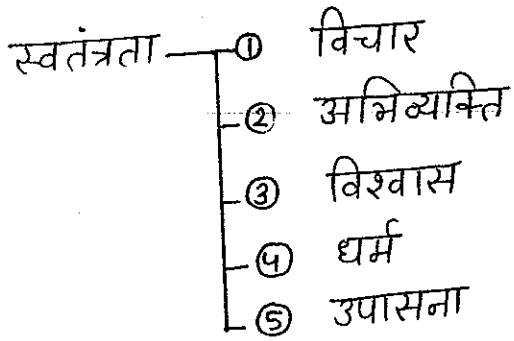 स्वतंत्रता ① विचार
② अभिव्यक्ति
③ विश्वास
④ धर्म
⑤ उपासना